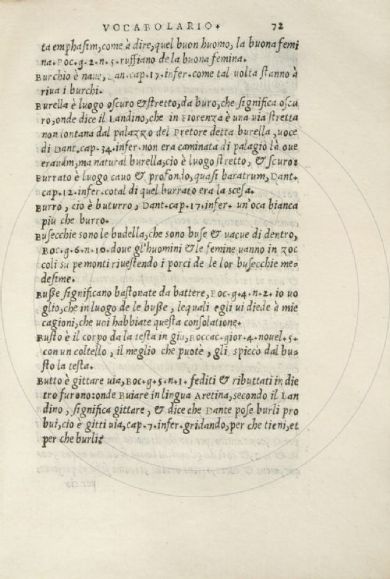 VOCABOLARIO. 72
ta emphasim, come à dire, quel buon huomo, la buona femi
na. Boc. g. 2. n. 5. ruffiano de la buona femina.
Burchio è naue, Dan. cap. 17. infer. come tal volta stanno à
riua i burchi.
Burella è luogo oscuro & stretto, da buro, che significa oscu
ro, onde dice il Landino, che in Fiorenza è una via stretta
non lontana dal palazzo del Pretore detta burella, uoce
di Dant. cap. 34. infer. non era caminata di palagio là oue
erauam, ma natural burella, cio è luogo stretto, & scuro:
Burrato è luogo cauo & profondo, quasi baratrum, Dant.
cap. 12. infer. cotal di quel burrato era la scesa.
Burro, cio è buturro, Dant. cap. 17. infer. un'oca bianca
piu che burro.
Busecchie sono le budella, che sono buse & uacue di dentro,
Boc. g. 6. n. 10. doue gl'huomini & le femine uanno in zoc
coli su pe monti riuestendo i porci de le lor busecchie me-
desime.
Busse significano bastonate da battere, Boc. g. 4. n. 2. io uo
glio, che in luogo de le busse, lequali egli ui diede à mie
cagioni, che uoi habbiate questa consolatione.
Busto è il corpo da la testa in giu, Boccac. gior. 4. nouel. 5.
con un coltello, il meglio che puote, gli spicco dal bu-
sto la testa.
Butto è gittare uia, Boc. g. 5. n. 1. fediti & ributtati in die
tro furono: onde Buiare in lingua Aretina, secondo il Lan
dino, significa gittare, & dice che Dante pose burli pro
bui, cio è gitti uia, cap. 7. infer. gridando, per che tieni, et
per che burli: